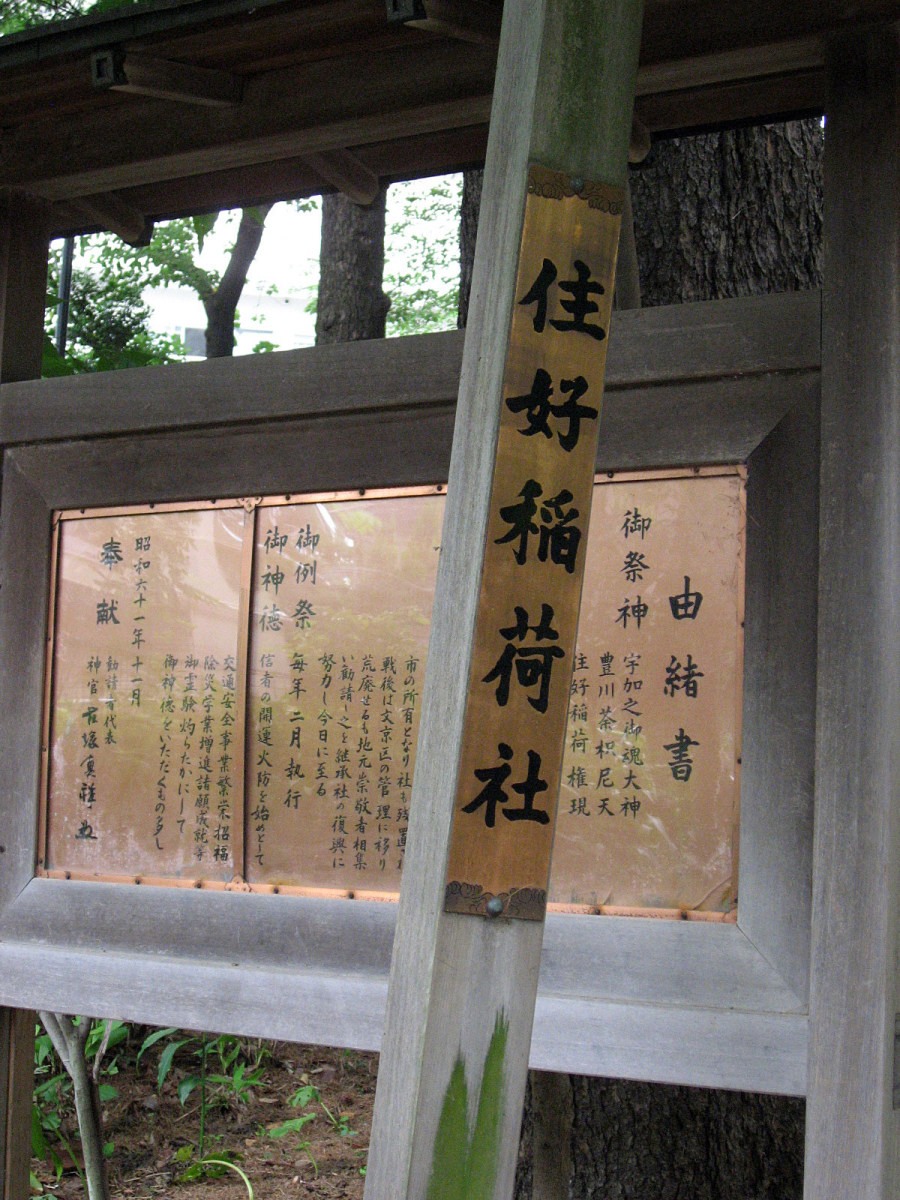 住好稲荷社
由緒書
御祭神
宇加之御魂大神
豊川荼枳尼天
住好稲荷権現
市の所有となり社も
戦後は文京区の管理に移り
荒廃せるも地元崇敬者相集
い勧請し之を継承社の復興に
努力し今日に至る
御例祭 毎年二月執行
御神徳 信者の開運火防を始めとして
交通安全事業繁栄招福
除災学業増進諸願成就等
御霊験灼らたかにして
御神徳をいただくもの多し
昭和六十一年十一月
奉献
勧請者代表
神官